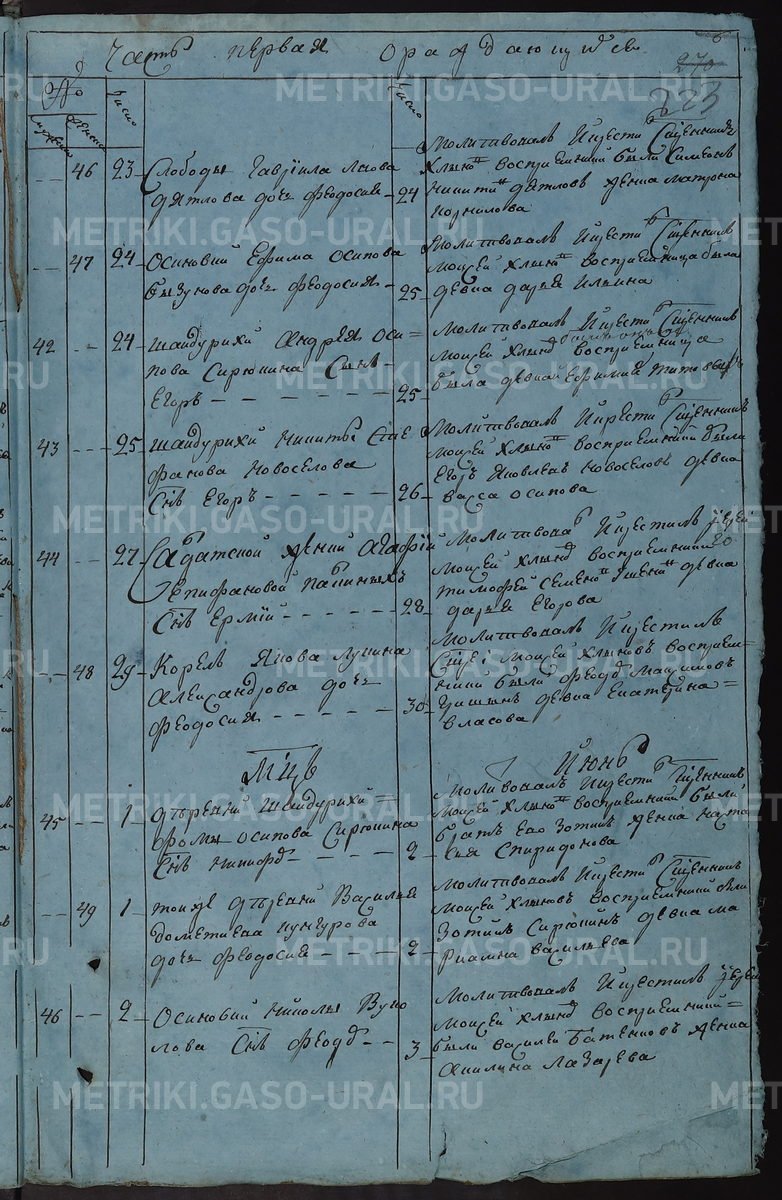 Часть первая о раждающихся
270
223
№
число
число
46 23 Слободы Гаврила Лвова
дятлова дочь Феодосия 24
Молитвовалъ и крестилъ Священникъ
Хлыновъ восприемники были Симеонъ
Никитинъ дятловъ женка матрона
корнилова
47 24 Осиновки Ефима Осипова
дочь Феодосия 25
Молитвовалъ и крестилъ Священникъ
Моисей Хлыновъ восприемница была
девка дарья Ильина
42 24 Шайдурихи Андрея Оси=
пова Сирюкина Сынъ
Егоръ 25
Молитвовалъ и крестилъ Священникъ
Моисей Хлыновъ восприемница
была девка Ефимия титовых
43 25 Шайдурихи Никиты Сте
фанова Новоселова
Снъ Егоръ 26
Молитвовалъ и крестилъ Священникъ
Моисей Хлыновъ восприемники были
Егоръ Яковлевъ Новоселовъ девка
Васса Осипова
44 27 Салдатской женки Агафии
Епифановой
Снъ Ермий 28
Молитвовалъ и крестилъ Иерей
Моисей Хлыновъ восприемники
тимофей Семеновъ девка
дарья Егорова
48 29 Корелъ Якова Лукина
Александрова дочь
Феодосия 30
Молитвовалъ и крестилъ
Свщен Моисей Хлыновъ восприем=
ники были Феодоръ Максимовъ
девка Екатерина=
власова
Мцъ Июнь
45 1 деревни Шайдурихи
Фомы Осипова Сирюкина
Снъ Никифоръ 2
Молитвовалъ и крестилъ Священникъ
Моисей Хлыновъ восприемники были
братъ его Зотикъ женка наста
сья Спиридонова
49 1 той же деревни Василья
дометиева кунгурова
дочь Феодосия 2
Молитвовалъ и крестилъ Священникъ
Моисей Хлыновъ восприемники были
Зотикъ Сирюкинъ девка ма
риамна васильева
46 2 Осиновки Николы Вуко
лова Снъ Феодоръ 3
Молитвовалъ и крестилъ Иерей
Моисей Хлыновъ восприемники=
были василей Батенковъ женка
Акилина Лазарева
METRIKI.GASO-URAL.RU